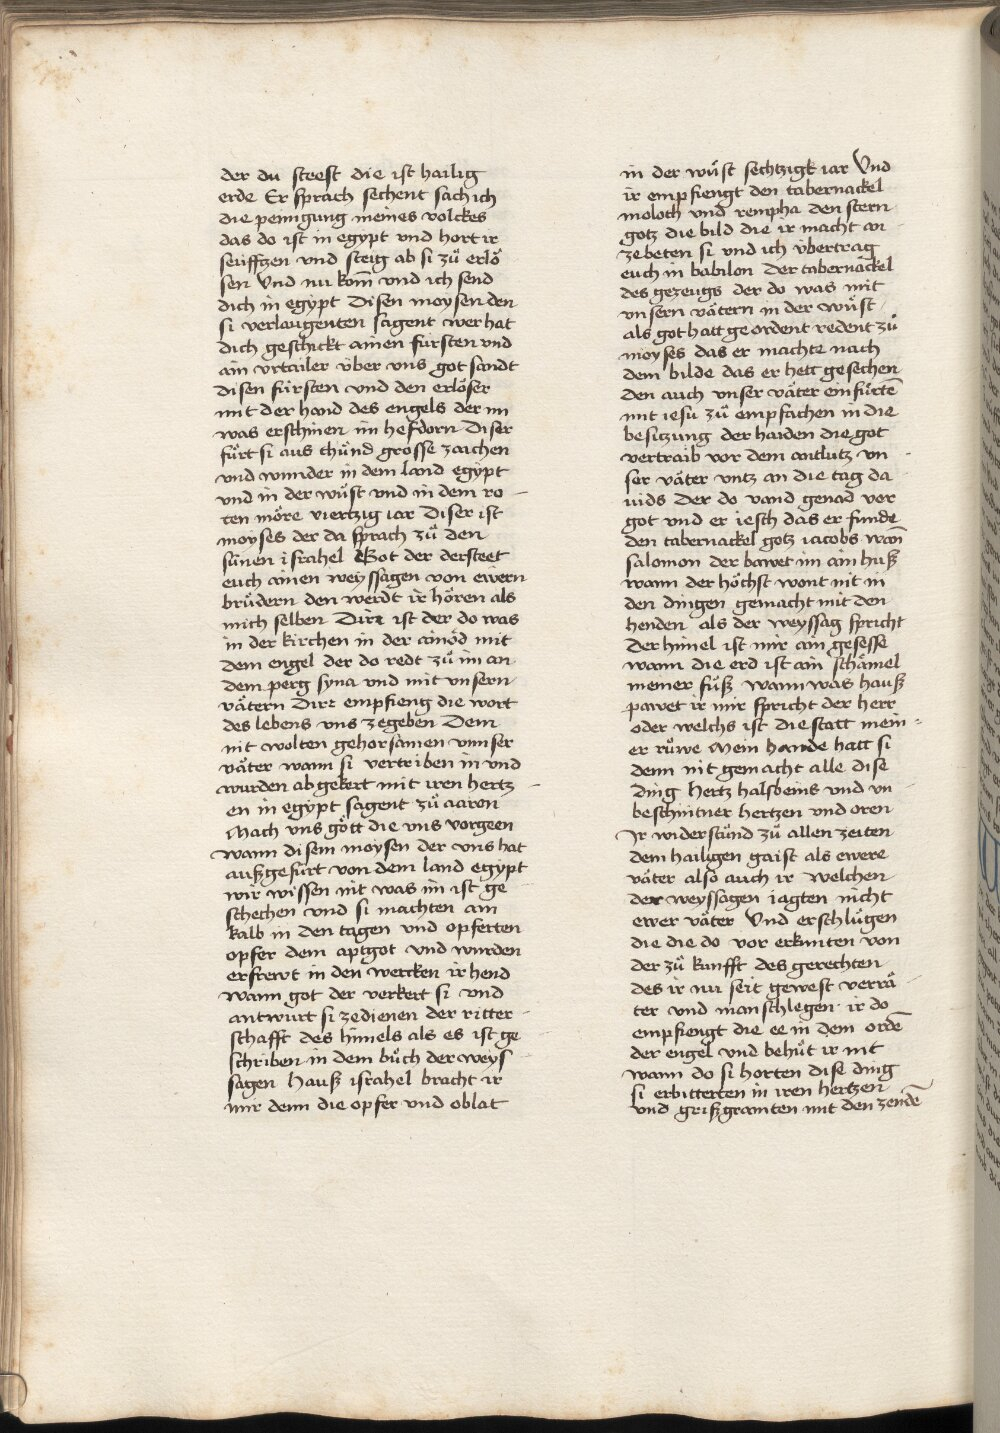 der du steest die ist hailig
erde Er sprach sechent sach ich
die peinigung meines volckes
das do ist in egypt vnd hort ir
seüfftzen vnd steig ab si zů erlö
sen Vnd nu kom̄ vnd ich send
dich in egypt Disen moysen den
si verlaugenten sagent wer hat
dich geschickt ainen fürsten vnd
ain vrtailer über vns got sandt
disen fürsten vnd den erlöser
mit der hand des engels der im
was erschinen im hefdorn Diser
fůrt si aus thůnd grosse zaichen
vnd wunder in dem land egypt
vnd in der wůst vnd in dem ro
ten möre viertzig iar Diser ist
moyses der da sprach zů den
sünen israhel Got der dersteet
euch ainen weyssagen von ewern
brüdern den werdt ir hören als
mich selben Dirr ist der do was
in der kirchen in der ainöd mit
dem engel der do redt zů im an
dem perg syna vnd mit vnsern
vätern Dirr empfieng die wort
des lebens vns zegeben Dem
nit wolten gehorsamen vnnser
väter wann si vertriben in vnd
wurden abgekert mit iren hertz
en in egypt sagent zů aaron
Mach vns gött die vns vorgeen
wann disem moysen der vns hat
außgefürt von dem land egypt
wir wissen nit was im ist ge
schechen vnd si machten ain
kalb in den tagen vnd opferten
opfer dem aptgot vnd wurden
erfrewt in den wercken ir hend
wann got der verkert si vnd
antwurt si zedienen der ritter
schafft des himels als es ist ge
schriben in dem bůch der weys
sagen Hauß israhel bracht ir
mir denn die opfer vnd oblat
in der wůst sechtzigk iar Vnd
ir empfiengt den tabernackel
moloch vnd rempha den stern
gotz die bild die ir macht an
zebeten si vnd ich übertrag
euch in babilon Der tabernackel
des gezeugs der do was mit
vnsern vätern in der wůst
als got hatt geordent redent zů
moyses das er machte nach
dem bilde das er hett gesechen
den auch vnser väter einfürtē
mit iesu zů empfachen in die
besitzung der haiden die got
vertraib vor dem antlutz vn
ser väter vntz an die tag da
uids Der do vand genad vor
got vnd er iesch das er funde
den tabernackel gotz iacobs wan̄
salomon der bawet im ain huß
wann der höchst wont nit in
den dingen gemacht mit den
henden als der weyssag spricht
Der himel ist mir ain gesesse
wann die erd ist ain schämel
meiner füß wann was hauß
pawet ir mir spricht der herr
oder welchs ist die statt mein
er růwe Mein hande hatt si
denn nit gemacht alle dise
ding Hertz halsbeins vnd vn
beschnitner hertzen vnd oren
Ir widerstůnd zů allen zeiten
dem hailigen gaist als ewere
väter also auch ir welchen
der weyssagen iagten nicht
ewer väter Vnd erschlůgen
die die do vor erkunten von
der zů kunfft des gerechten
des ir nu seit gewest verrä
ter vnd manschlegen ir do
empfiengt die ee in dem ordē
der engel vnd behůt ir nit
wann do si horten dise ding
si erbitterten in iren hertzen
vnd grißgramten mit den zendē